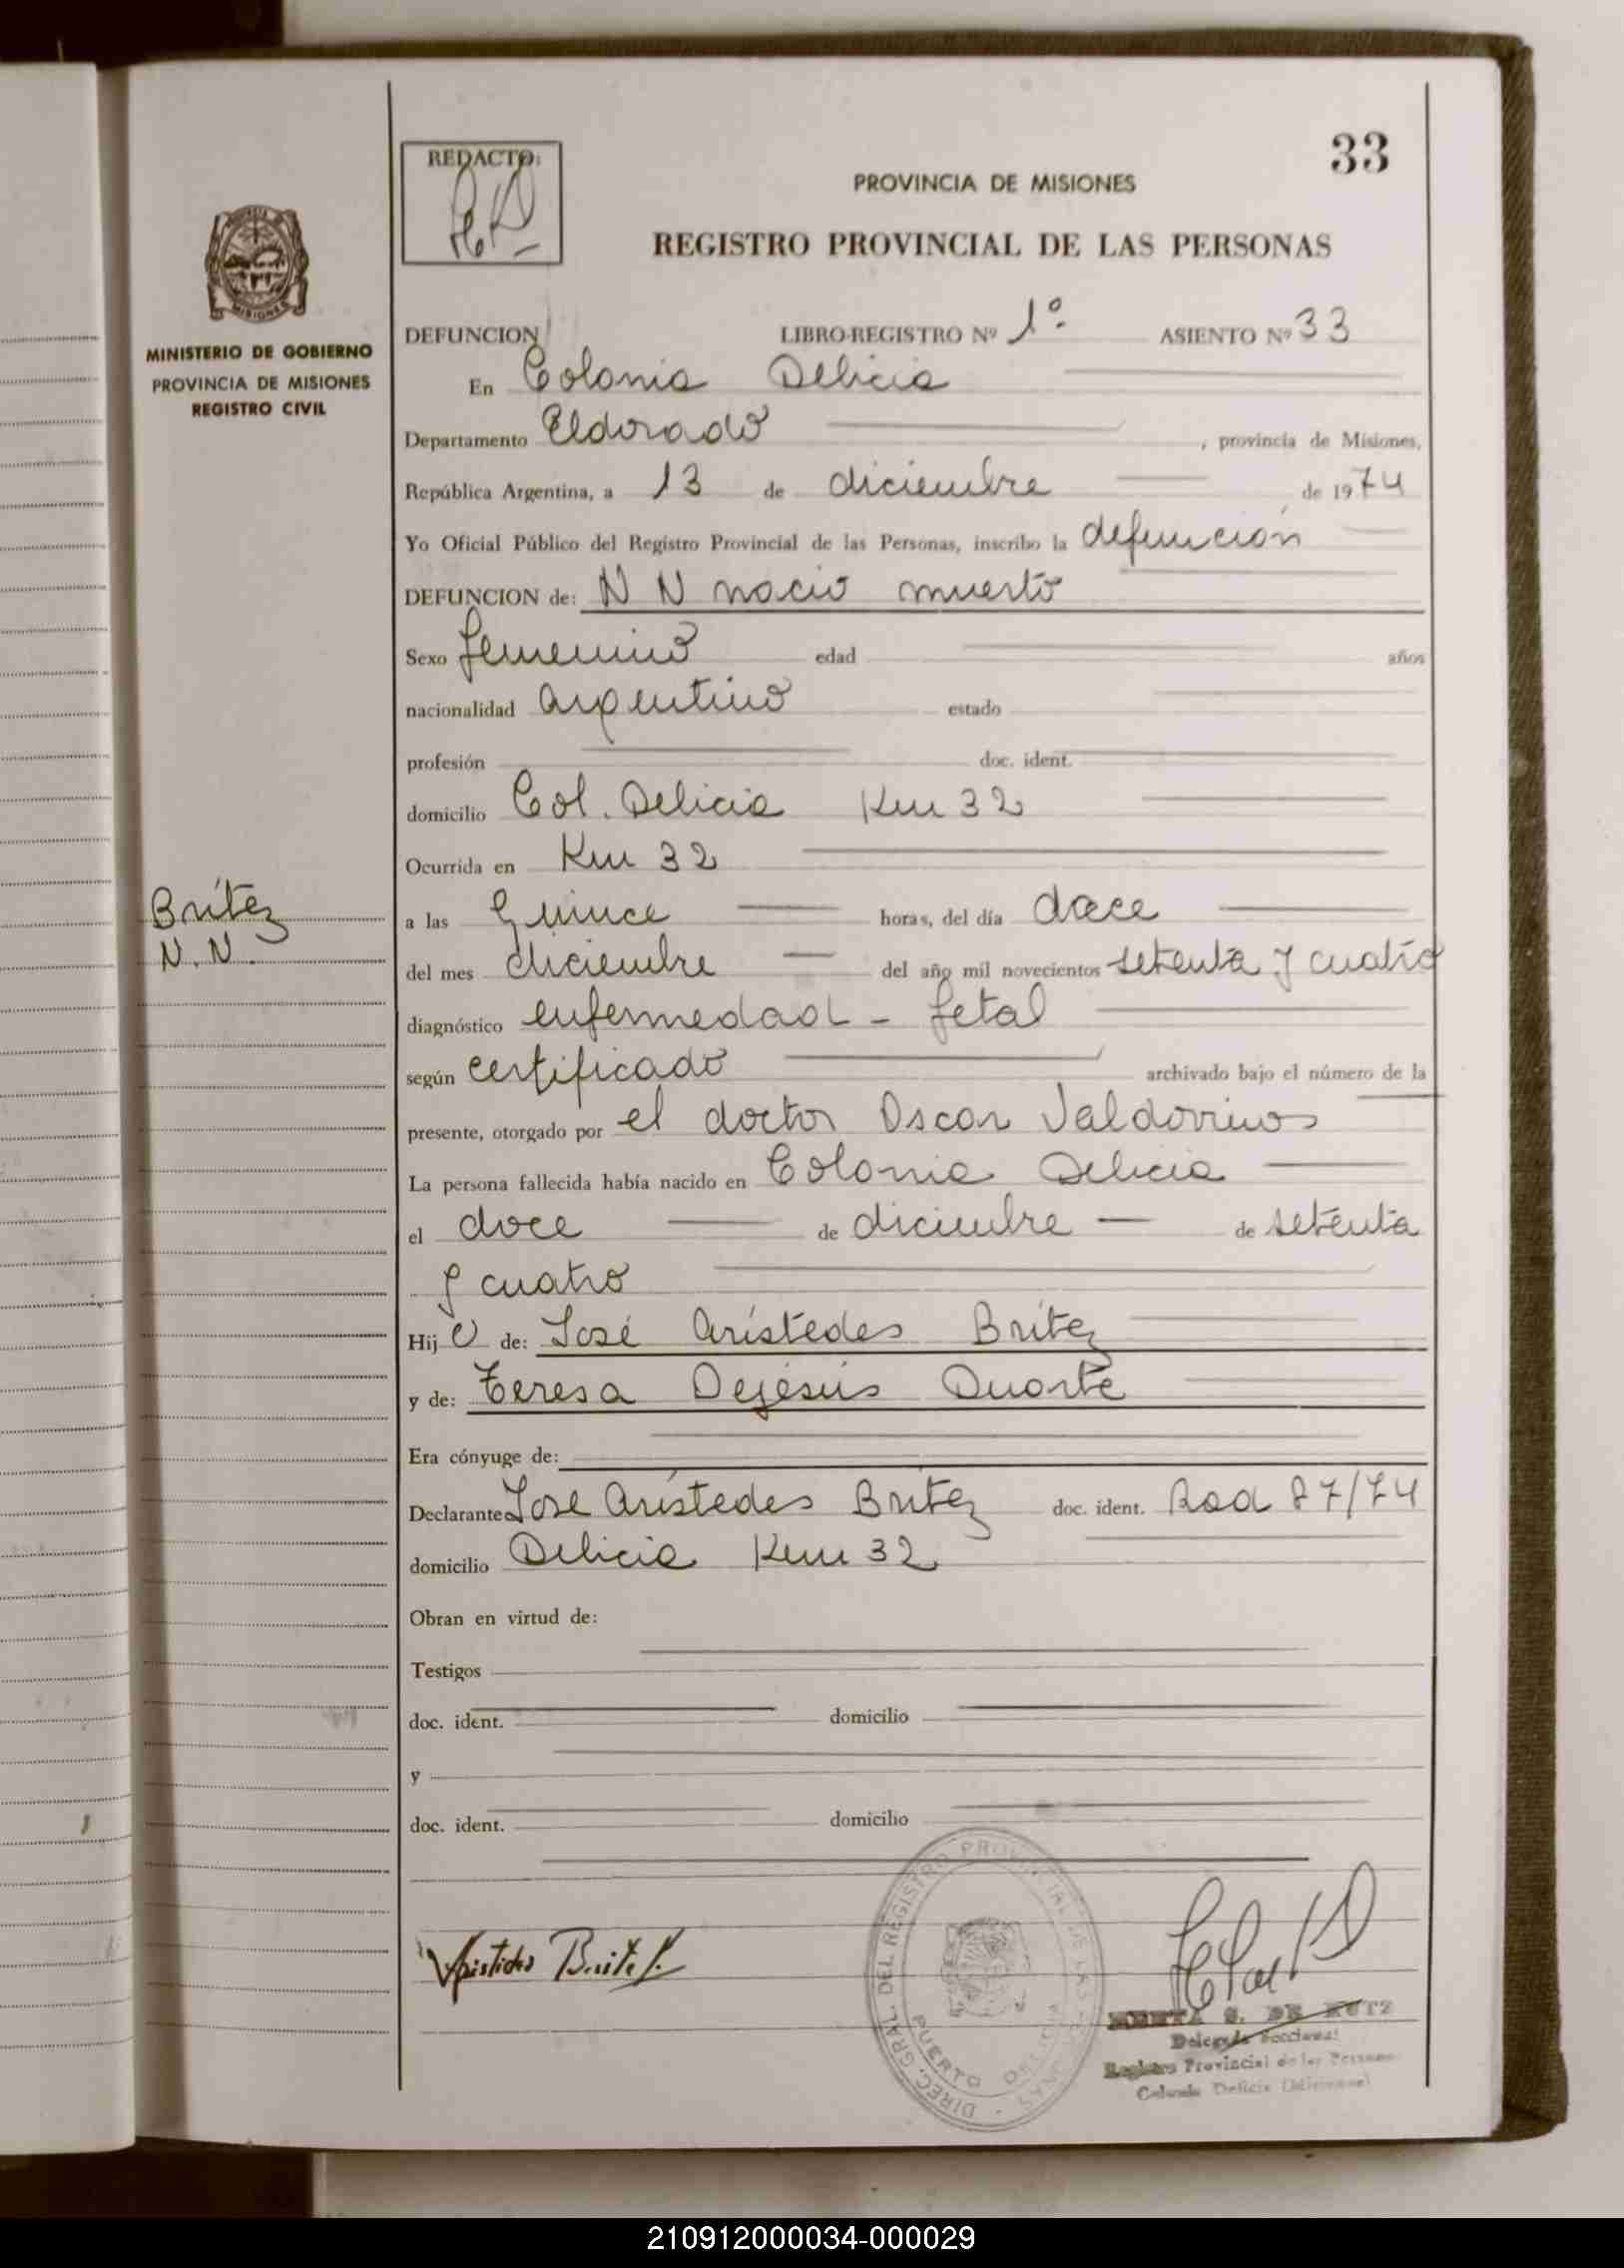 33
REDACTO:
PROVINCIA DE MISIONES
REGISTRO PROVINCIAL DE LAS PERSONAS
MISIONES
MINISTERIO DE GOBIERNO
PROVINCIA DE MISIONES
REGISTRO CIVIL
DEFUNCION LIBRO-REGISTRO Nº 1º. ASIENTO Nº 33
En Colonia Delicia
Departamento Eldorado, provincia de Misiones,
República Argentina, a 13 de diciembre de 1974
Yo Oficial Público del Registro Provincial de las Personas, inscribo la defuncion
DEFUNCION de: N N nacio muerto
Sexo femenino edad años
nacionalidad argentino estado
profesión doc. ident.
domicilio Col. Delicia Km 32
Ocurrida en Km 32
Britez
N.N.
a las Quince horas, del día doce
del mes diciembre del año mil novecientos setenta y cuatro
diagnóstico enfermedad - fetal
según certificado archivado bajo el número de la
presente, otorgado por el doctor Oscar Valdovinos
La persona fallecida había nacido en Colonia Delicia
el doce de diciembre de setenta
y cuatro
Hij o de: José Arístedes Britez
y de: Teresa Dejesús Duarte
Era cónyuge de:
Declarante José Arístedes Britez doc. ident. Rad 87/74
domicilio Delicia Km 32
Obran en virtud de:
Testigos
doc. ident. domicilio
y
doc. ident. domicilio
Aristides Britez
DIREC. GRAL. DEL REGISTRO PROVINCIAL DE LAS PERSONAS
PUERTO
S. DE KUTZ
Delegada Seccional
Registro Provincial de las Personas
Colonia Delicia (Misiones)
210912000034-000029